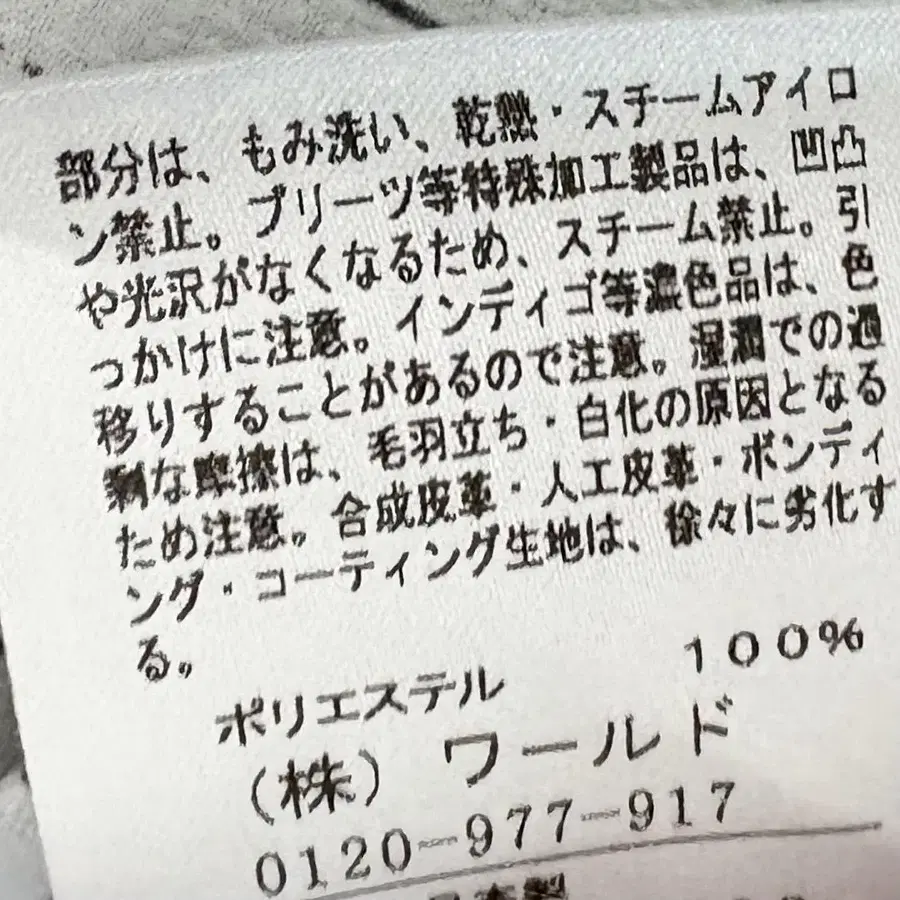 部分は、もみ洗い、乾熱・スチームアイロ
ン禁止。プリーツ等特殊加工製品は、凹凸
や光沢がなくなるため、スチーム禁止。引
っかけに注意。インディゴ等濃色品は、色
移りすることがあるので注意。湿潤での過
剰な摩擦は、毛羽立ち・白化の原因となる
ため注意。合成皮革・人工皮革・ボンディ
ング・コーティング生地は、徐々に劣化す
る。
ポリエステル 100%
(株) ワールド
0120-977-917